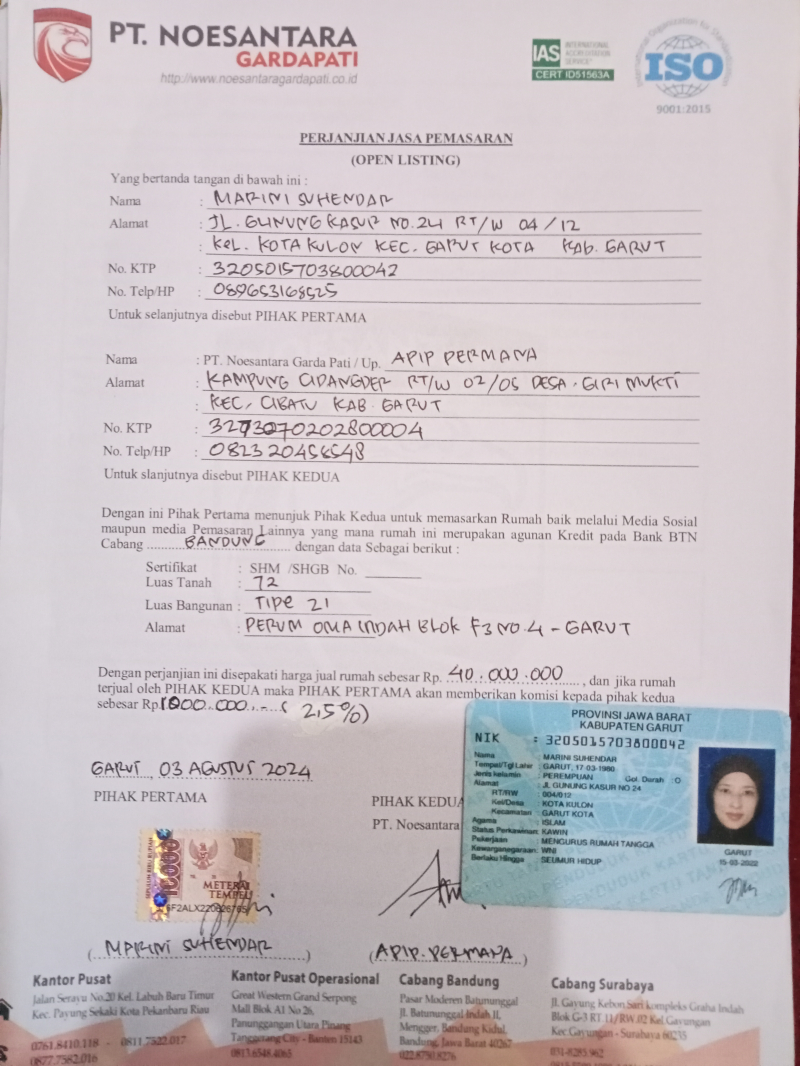 PT. NOESANTARA
GARDAPATI
http://www.noesantaragardapati.co.id
IAS INTERNATIONAL ACCREDITATION SERVICE
CERT ID51563A
International Organization for Standardization
ISO
9001:2015
PERJANJIAN JASA PEMASARAN
(OPEN LISTING)
Yang bertanda tangan di bawah ini :
Nama : MARINI SUHENDAR
Alamat : JL. GUNUNG KASUR NO.24 RT/W 04/12
: KEL. KOTA KULON KEC. GARUT KOTA KAB. GARUT
No. KTP : 3205015703800042
No. Telp/HP : 089653168525
Untuk selanjutnya disebut PIHAK PERTAMA
Nama : PT. Noesantara Garda Pati / Up. APIP PERMANA
Alamat : KAMPUNG CIDANGDER RT/W 02/05 DESA. GIRI MUKTI
: KEC. CIBATU KAB. GARUT
No. KTP : 3273070202800004
No. Telp/HP : 082320456548
Untuk slanjutnya disebut PIHAK KEDUA
Dengan ini Pihak Pertama menunjuk Pihak Kedua untuk memasarkan Rumah baik melalui Media Sosial
maupun media Pemasaran Lainnya yang mana rumah ini merupakan agunan Kredit pada Bank BTN
Cabang ........BANDUNG........ dengan data Sebagai berikut :
Sertifikat : SHM /SHGB No. ________
Luas Tanah : 72
Luas Bangunan : TIPE 21
Alamat : PERUM OMA INDAH BLOK F3 NO.4 - GARUT
Dengan perjanjian ini disepakati harga jual rumah sebesar Rp. 40.000.000 , dan jika rumah
terjual oleh PIHAK KEDUA maka PIHAK PERTAMA akan memberikan komisi kepada pihak kedua
sebesar Rp.1000.000.-- ( 2,5%)
GARUT, 03 AGUSTUS 2024
PIHAK PERTAMA
PIHAK KEDUA
PT. Noesantara
PROVINSI JAWA BARAT
KABUPATEN GARUT
NIK : 3205015703800042
Nama : MARINI SUHENDAR
Tempat/Tgl Lahir : GARUT, 17-03-1980
Jenis kelamin : PEREMPUAN Gol. Darah : O
Alamat : JL GUNUNG KASUR NO 24
RT/RW : 004/012
Kel/Desa : KOTA KULON
Kecamatan : GARUT KOTA
Agama : ISLAM
Status Perkawinan: KAWIN
Pekerjaan : MENGURUS RUMAH TANGGA
Kewarganegaraan: WNI
Berlaku Hingga : SEUMUR HIDUP
GARUT
15-03-2022
10000
METERAI
TEMPEL
(MARINI SUHENDAR)
(APIP. PERMANA)
Kantor Pusat
Jalan Serayu No.20 Kel. Labuh Baru Timur
Kec. Payung Sekaki Kota Pekanbaru Riau
0761.8410.118 - 0811.7522.017
0877.7582.016
Kantor Pusat Operasional
Great Western Grand Serpong
Mall Blok A1 No.26,
Panunggangan Utara Pinang
Tanggerang City - Banten 15143
0813.6548.4065
Cabang Bandung
Pasar Moderen Batununggal
Jl. Batununggal Indah Jl.
Mengger, Bandung Kidul,
Bandung, Jawa Barat 40267
022.8730.8276
Cabang Surabaya
Jl. Gayung Kebon Sari kompleks Graha Indah
Blok G-3 RT.11/RW.02 Kel.Gayungan
Kec.Gayungan - Surabaya 60235
031-8285.962